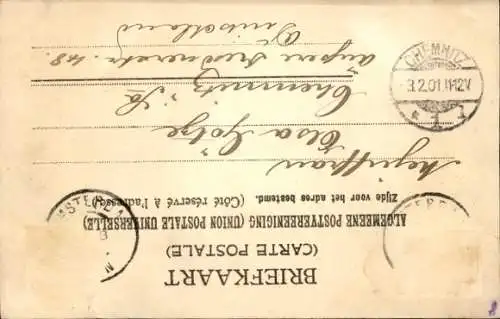 BRIEFKAART
(CARTE POSTALE)
ALGEMEENE POSTVEREENIGING (UNION POSTALE UNIVERSELLE)
Zijde voor het adres bestemd. (Côté réservé à l'adresse.)
Elsa Götze
Chemnitz i. Sa
äussere Dresdnerstr. 48.
Deutschland
CHEMNITZ
3.2.01.11-12V
* 1 1